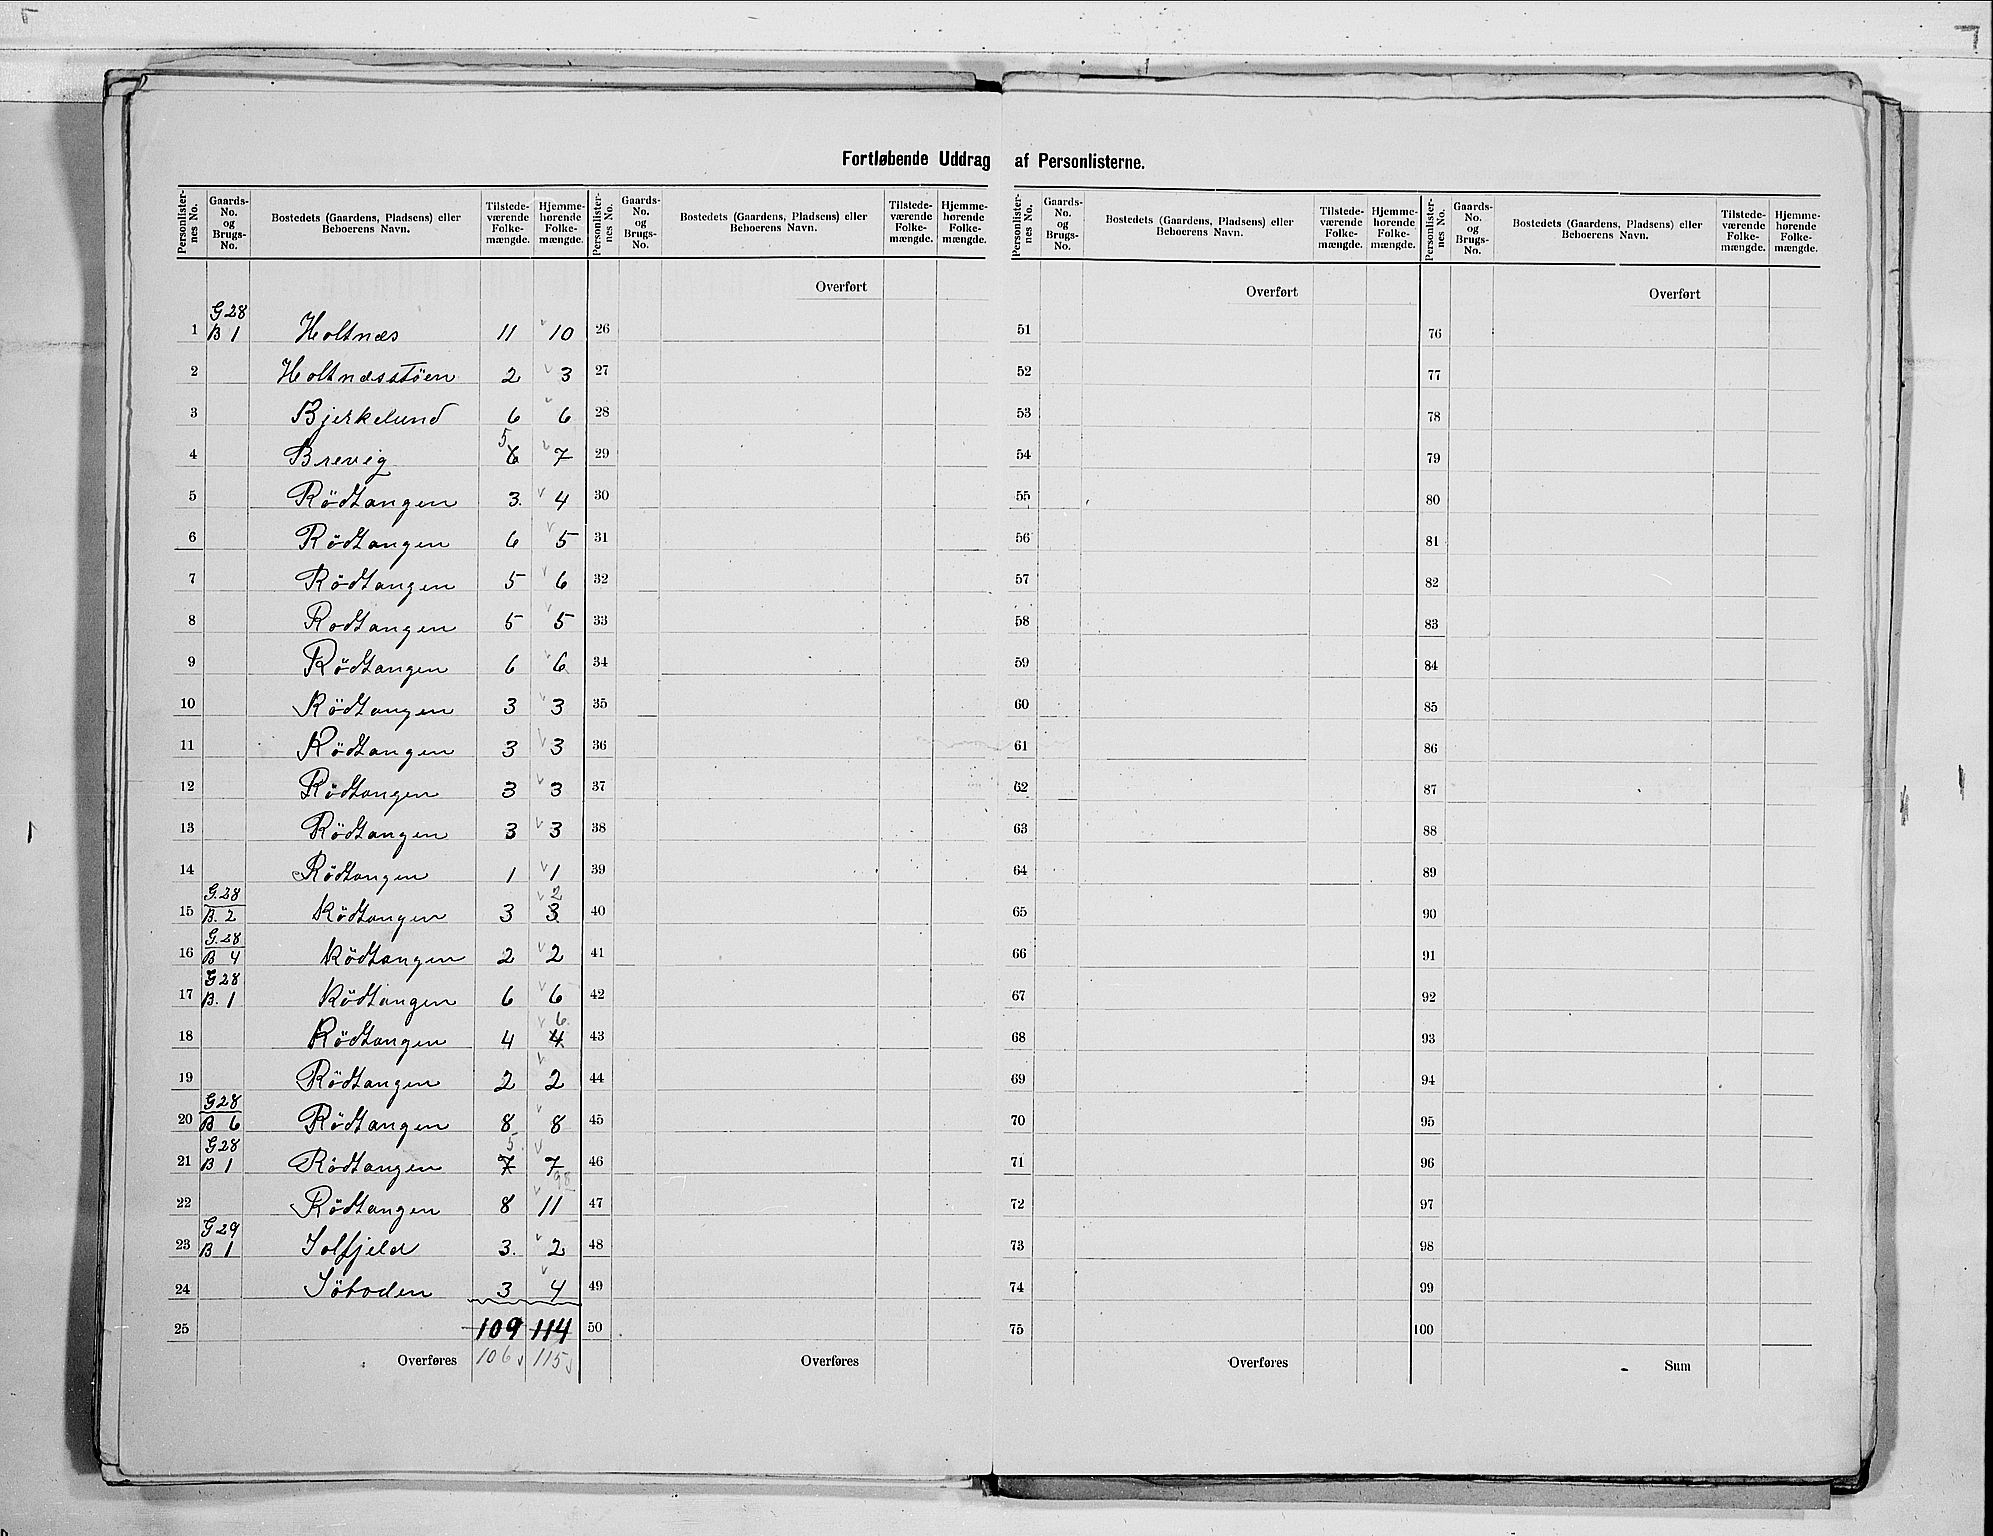 Fortløbende Uddrag af Personlisterne.
Personlisternes No. | Gaards-No. og Brugs-No. | Bostedets (Gaardens, Pladsens) eller Beboerens Navn. | Tilstedeværende Folkemængde. | Hjemmehørende Folkemængde.
Personlisternes No. | Gaards-No. og Brugs-No. | Bostedets (Gaardens, Pladsens) eller Beboerens Navn. | Tilstedeværende Folkemængde. | Hjemmehørende Folkemængde.
Personlisternes No. | Gaards-No. og Brugs-No. | Bostedets (Gaardens, Pladsens) eller Beboerens Navn. | Tilstedeværende Folkemængde. | Hjemmehørende Folkemængde.
Personlisternes No. | Gaards-No. og Brugs-No. | Bostedets (Gaardens, Pladsens) eller Beboerens Navn. | Tilstedeværende Folkemængde. | Hjemmehørende Folkemængde.
Overført Overført Overført
G 28
1 B 1 Holtnæs 11 10 26 51 76
2 Holtnæsstöen 2 3 27 52 77
3 Bjerkelund 6 6 28 53 78
5
4 Brevig 6 7 29 54 79
5 Rödtangen 3. 4 30 55 80
6 Rödtangen 6 5 31 56 81
7 Rödtangen 5 6 32 57 82
8 Rodtangen 5 5 33 58 83
9 Rödtangen 6 6 34 59 84
10 Rödtangen 3 3 35 60 85
11 Rödtangen 3 3 36 61 86
12 Rödtangen 3 3 37 62 87
13 Rödtangen 3 3 38 63 88
14 Rödtangen 1 1 39 64 89
G. 28 2
15 B. 2 Rödtangen 3 3 40 65 90
G. 28
16 B 4 Rödtangen 2 2 41 66 91
G 28
17 B. 1 Rödtangen 6 6 42 67 92
6
18 Rödtangen 4 4 43 68 93
19 Rödtangen 2 2 44 69 94
G 28
20 B 6 Rödtangen 8 8 45 70 95
G 28 5
21 B 1 Rödtangen 7 7 46 71 96
98
22 Rödtangen 8 11 47 72 97
G 29
23 B 1 Solfjeld 3. 2 48 73 98
24 Söboden 3 4 49 74 99
25 109 114 50 75 100
Overføres 106 115 Overføres Overføres Sum